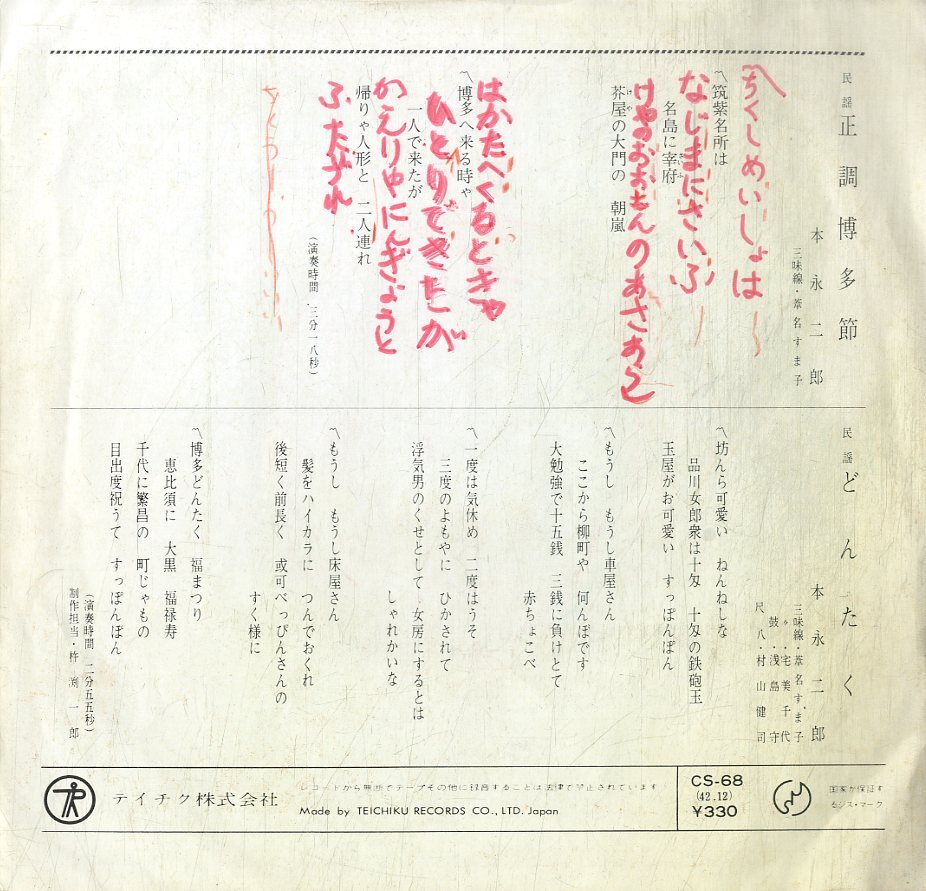 民謡 正調博多節
本永二郎
三味線・葦名すま子
〽ちくしめいしょは〜
〽筑紫名所は
なじまにさいふ〜
名島に宰府
さいふ
けやのおおもんのあさあらし
けや
芥屋の大門の 朝嵐
はかたへくるときゃ
〽博多へ来る時ゃ
ひとりできたが
一人で来たが
かえりゃにんぎょうと
帰りゃ人形と 二人連れ
ふたづれ
(演奏時間 三分一八秒)
民謡 どんたく
本永二郎
三味線・葦名すま子
〃・宅美千代
鼓・浅島守
尺八・村山健司
〽坊んら可愛い ねんねしな
品川女郎衆は十匁 十匁の鉄砲玉
玉屋がお可愛い すっぽんぽん
〽もうし もうし車屋さん
ここから柳町や 何んぼです
大勉強で十五銭 三銭に負けとて
赤ちょこべ
〽一度は気休め 二度はうそ
三度のよもやに ひかされて
浮気男のくせとして 女房にするとは
しゃれかいな
〽もうし もうし床屋さん
髪をハイカラに つんでおくれ
後短く前長く 或可べっぴんさんの
すく様に
〽博多どんたく 福まつり
恵比須に 大黒 福禄寿
千代に繁昌の 町じゃもの
目出度祝うて すっぽんぽん
(演奏時間 二分五五秒)
制作担当・杵渕一郎
テイチク株式会社
レコードから無断でテープその他に録音することは法律で禁止されています
Made by TEICHIKU RECORDS CO., LTD. Japan
CS-68
(42.12)
¥330
国家が保証す
るジス・マーク